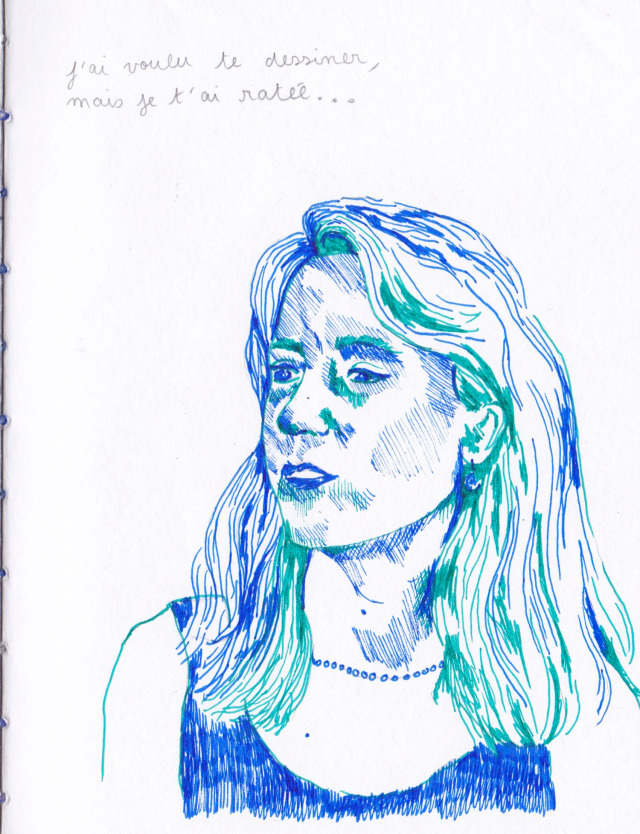 j'ai voulu te dessiner,
mais je t'ai ratée...